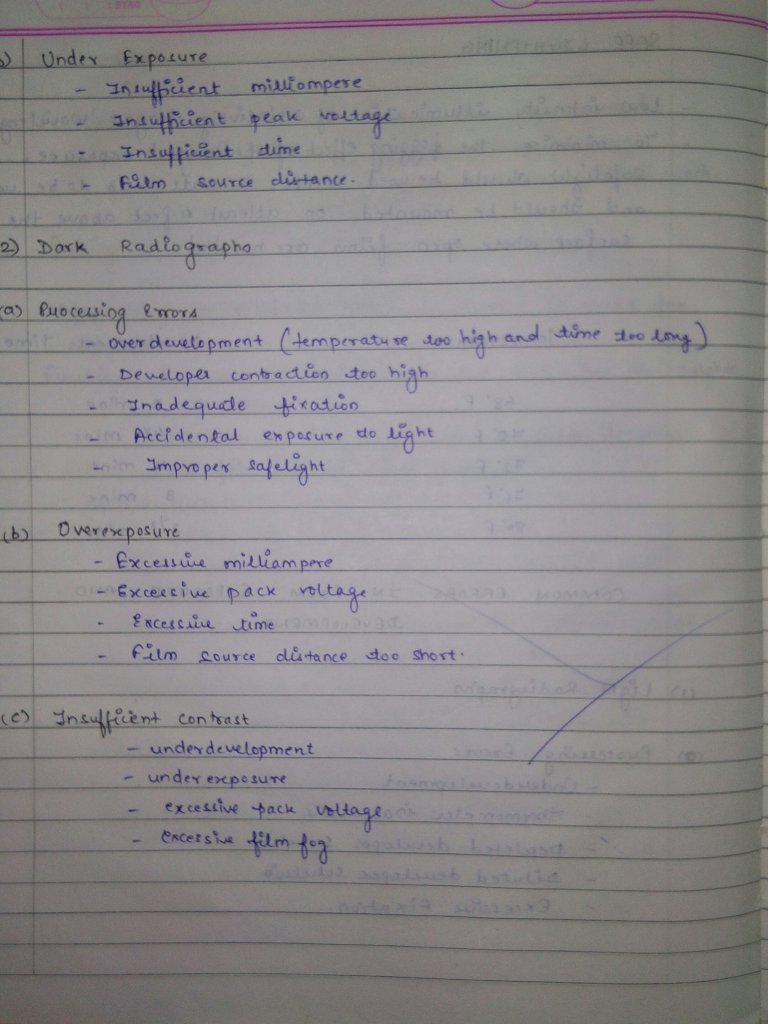 b) Under Exposure
- Insufficient milliampere
- Insufficient peak voltage
- Insufficient time
- Film source distance.
2) Dark Radiographs
(a) Processing Errors
- overdevelopment (temperature too high and time too long)
- Developer contraction too high
- Inadequate fixation
- Accidental exposure to light
- Improper safelight
(b) Overexposure
- Excessive milliampere
- Excessive pack voltage
- Excessive time
- Film source distance too short.
(c) Insufficient contrast
- underdevelopment
- underexposure
- excessive pack voltage
- excessive film fog